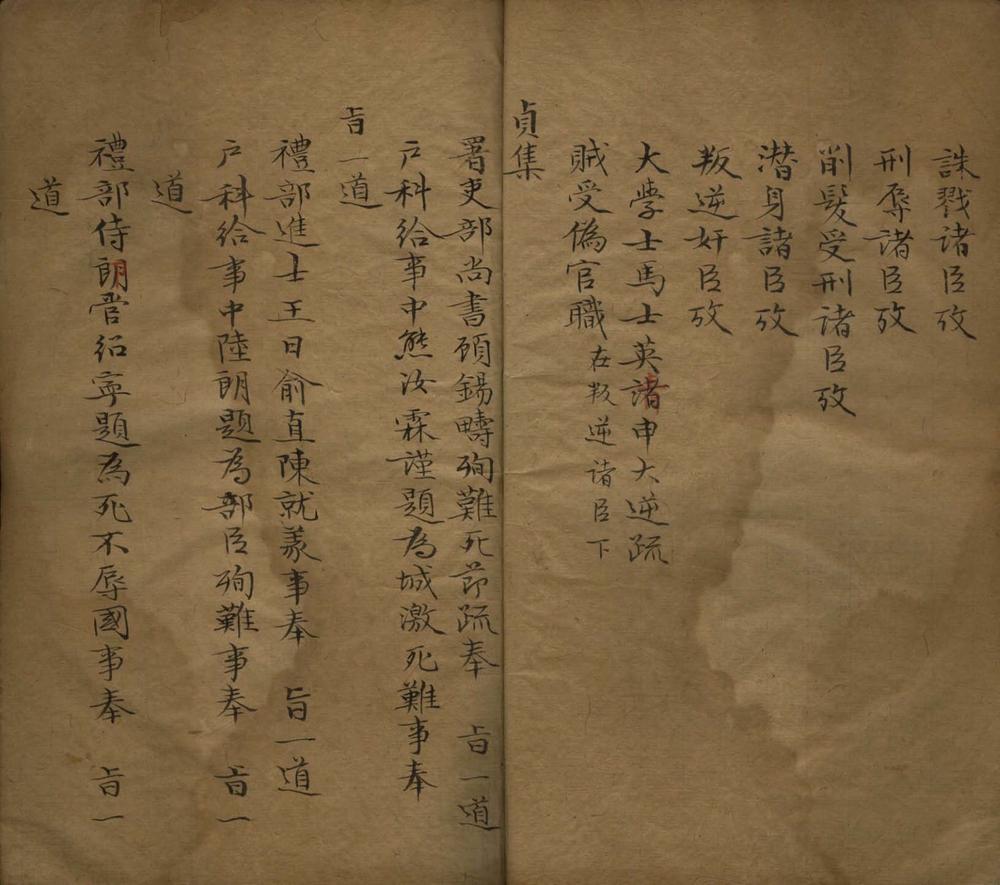 誅戮诸臣攷
刑辱諸臣攷
削髮受刑诸臣攷
潜身諸臣攷
叛逆奸臣攷
大學士馬士英諸申大逆疏
賊受偽官職在叛逆诸臣下
貞集
署吏部尚書顾錫疇殉難死莭疏奉 旨一道
户科給事中熊汝霖謹題為城激死難事奉
旨一道
禮部進士王曰俞直陳就義事奉 旨一道
户科給事中陸朗題為部臣殉難事奉 旨一
道
禮部侍朗管紹寧題為死不辱國事奉 旨一
道